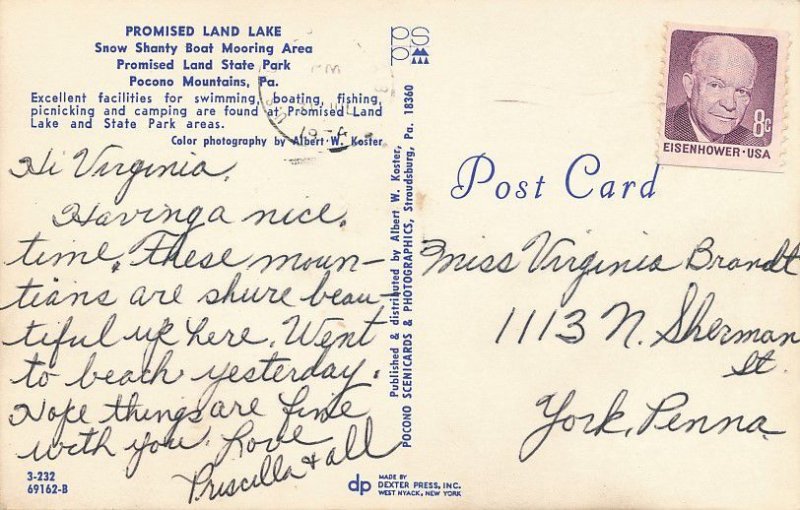 PROMISED LAND LAKE
Snow Shanty Boat Mooring Area
Promised Land State Park
Pocono Mountains, Pa.
Excellent facilities for swimming, boating, fishing,
picnicking and camping are found at Promised Land
Lake and State Park areas.
Color photography by Albert W. Koster
Hi Virginia,
Having a nice
time. These moun-
tians are shure beau-
tiful up here. Went
to beach yesterday.
Hope things are fine
with you. Love
Priscilla & all
3-232
69162-B
PSP
PM
Published & distributed by Albert W. Koster,
POCONO SCENICARDS & PHOTOGRAPHICS, Stroudsburg, Pa. 18360
dp MADE BY
DEXTER PRESS, INC.
WEST NYACK, NEW YORK
8c
EISENHOWER·USA
Post Card
Miss Virginia Brandt
1113 N. Sherman
St.
York, Penna.